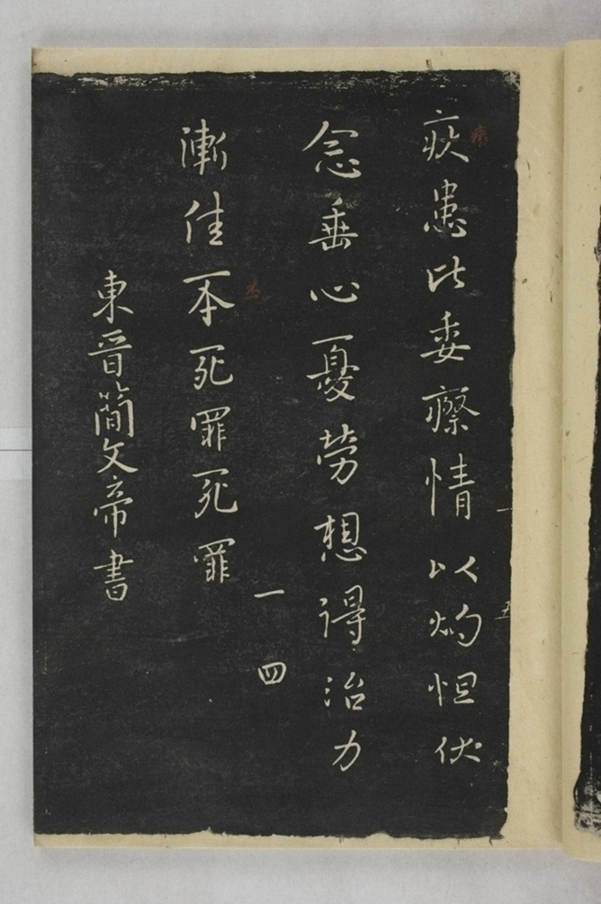 疾患比委瘵情以灼怛伏
念垂心憂勞想得治力
漸佳不死罪死罪
一四
東晉簡文帝書